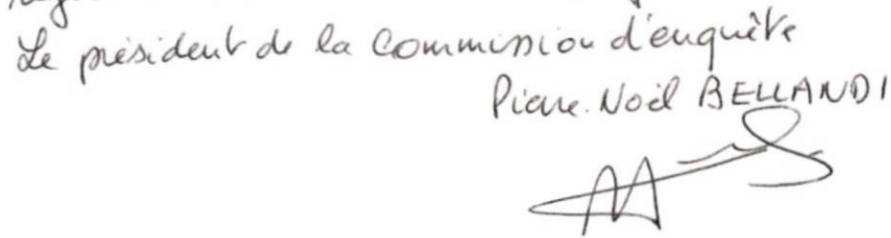 Le président de la Commission d'enquête
Pierre. Noël BELLANDI